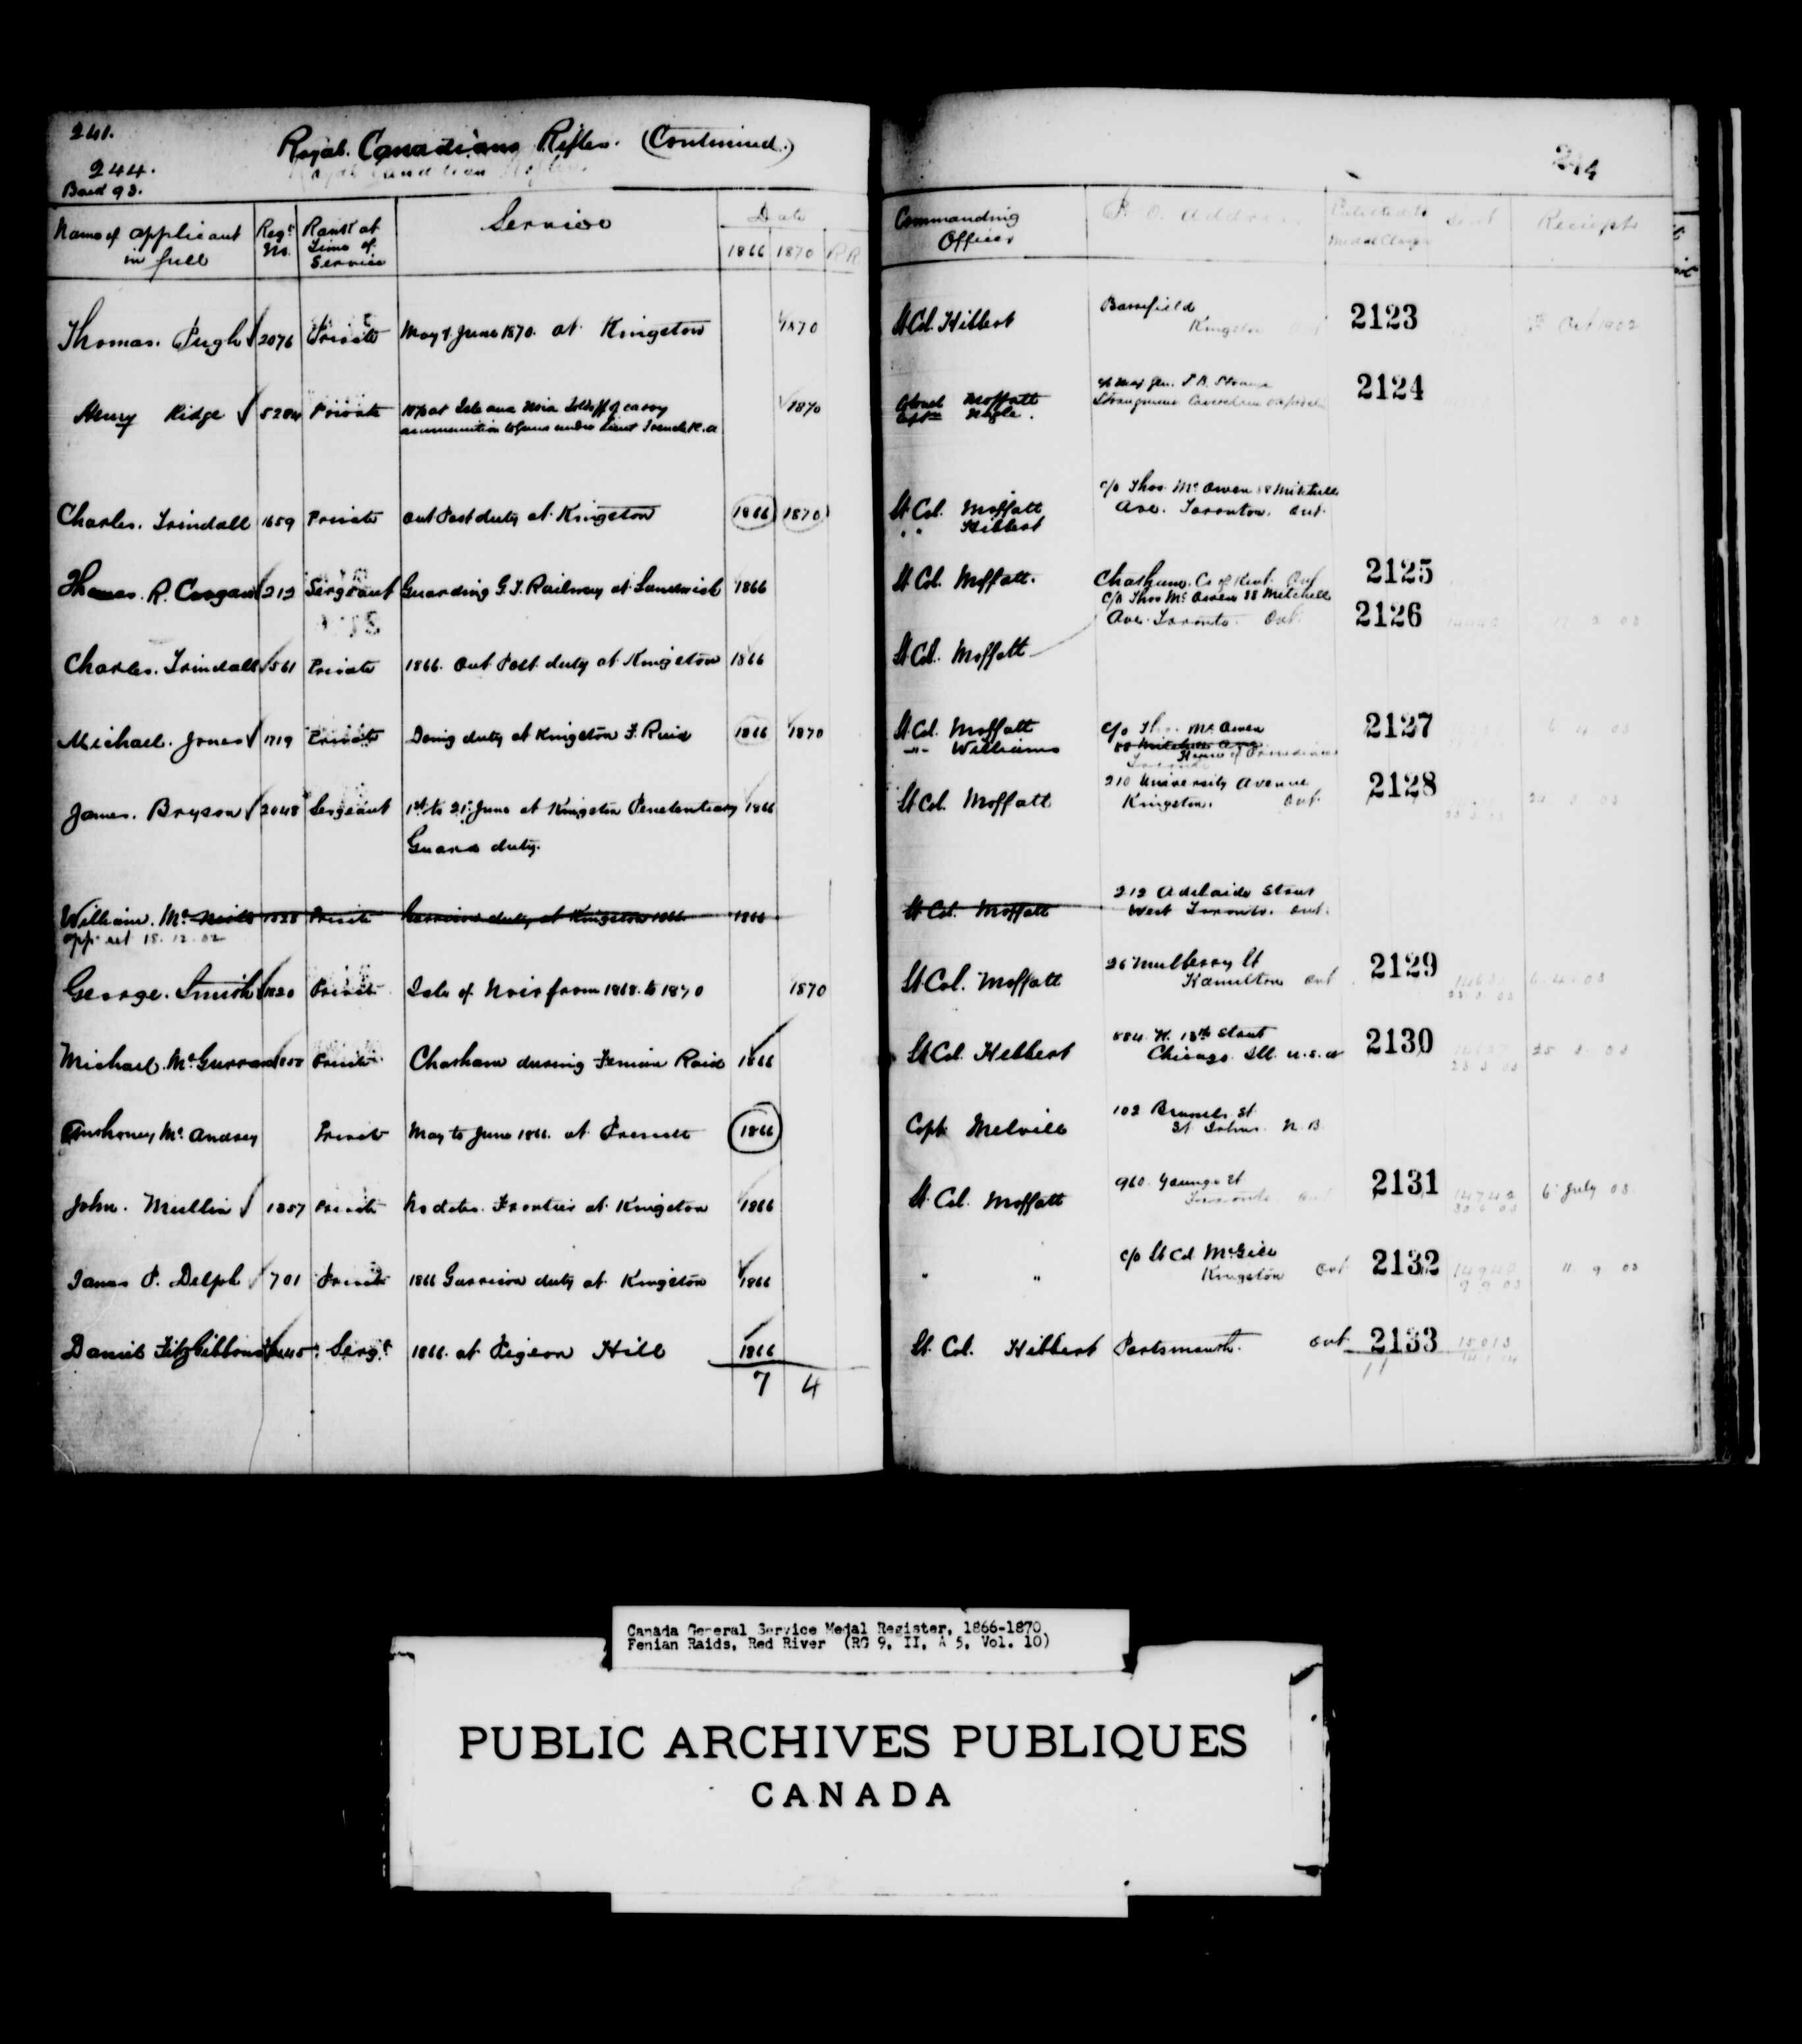 241.
244.
Royal Canadians Rifles. (Continued.)
Name of applicant in full
Regt No.
Rank at Time of Service
Service
Date
1866 1870 R.R.
Thomas. Pugh 2076 Private May & June 1870. at Kingston 1870
Henry Ridge Private 1870 at Isle aux Noix 1870
ammunition to Guns under Lieut
Charles. Trindall 1659 Private Out Post duty at Kingston 1866 1870
Thomas. R. 212 Sergeant Guarding G.T. Railway at Sandwich 1866
Charles. Trindall 1561 Private 1866. Out Post duty at Kingston 1866
Michael. Jones 1719 Private Doing duty at Kingston F. Raid 1866 1870
James. Bryson 2048 Sergeant 1st to 21st June at Kingston Penetentiary 1866
Guard duty.
William. Mc Private Garrison duty at Kingston 1866 1866
18.12.02
George. Smith 1820 Private Isle of Noix from 1868. to 1870 1870
Michael. McGurran Private Chatham during Fenian Raid 1866
Private May to June 1866. at 1866
John. Mullin 1357 Private No dates. Frontier at Kingston 1866
James P. Delph 701 Private 1866 Garrison duty at Kingston 1866
Daniel FitzGibbons Sergt 1866. at Pigeon Hill 1866
7 4
244
Commanding Officer
P.O. Address
Entitled to Medal Clasps
Sent
Receipt
Lt Col. Hibbert Barriefield
Kingston Ont 2123 Oct 1902
Colonel Moffatt
Captn Nagle. c/o Maj Gen. 2124
Lt Col. Moffatt
" " Hibbert c/o Thos. McOwen 88 Mitchell
Ave. Toronto. Ont.
Lt Col. Moffatt. Chatham. Co of Kent. Ont 2125
Lt Col. Moffatt c/o Thos McOwen 88 Mitchell
Ave. Toronto. Ont. 2126
Lt Col. Moffatt
-"- Williams c/o Thos. McOwen
88 Mitchell Ave 2127 6 4 03
Lt Col. Moffatt 210 University Avenue
Kingston. Ont. 2128
Lt Col. Moffatt 212 Adelaide Street
West Toronto. Ont.
Lt Col. Moffatt 26 Mulberry St
Hamilton Ont 2129 6.4.03
Lt Col. Hibbert 13th Street
Chicago. Ill. U.S.A 2130 25 3 03
Capt Melville 102 Brussels St
St Johns. N.B.
Lt. Col. Moffatt 960 Younge St
Toronto Ont 2131 6 July 03
" " c/o Lt Col McGill
Kingston Ont 2132 11 9 03
Lt. Col. Hibbert Portsmouth. Ont 2133
11
Canada General Service Medal Register, 1866-1870
Fenian Raids, Red River (RG 9, II, A 5, Vol. 10)
PUBLIC ARCHIVES PUBLIQUES
CANADA